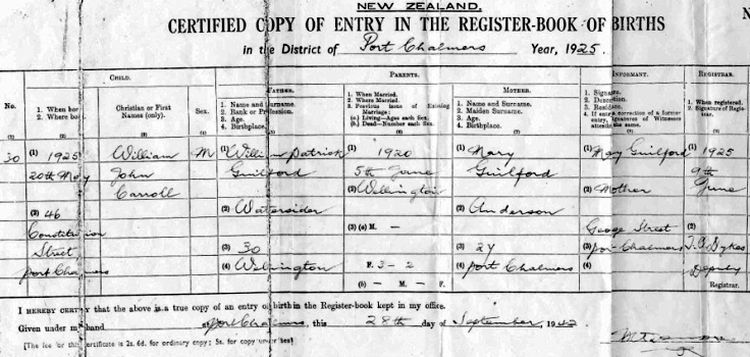 NEW ZEALAND.
CERTIFIED COPY OF ENTRY IN THE REGISTER-BOOK OF BIRTHS
in the District of Port Chalmers Year, 1925.
CHILD. PARENTS. INFORMANT. REGISTRAR.
FATHER. MOTHER.
No.
1. When bor
2. Where bo
Christian or First
Names (only).
Sex.
1. Name and Surname.
2. Rank or Profession.
3. Age.
4. Birthplace.
1. When Married.
2. Where Married.
3. Previous issue of Existing
Marriage:
(a.) Living—Ages each Sex.
(b.) Dead—Number each Sex.
1. Name and Surname.
2. Maiden Surname.
3. Age.
4. Birthplace.
1. Signature
2. Description.
3. Residence
4. If entry a correction of a former
entry, Signatures of Witnesses
attesting the same.
1. When registered.
2. Signature of Regis-
trar.
30 (1) 1925 William M (1) William Patrick (1) 1920 (1) Mary (1) Mary Guilford (1) 1925
20th May John Guilford 5th June Guilford 9th
Carroll (2) Wellington (2) Mother June
(2) 46 (2) Watersider (2) Anderson
Constitution (3) (a) M. — George Street (2)
Street, (3) 30 (3) 24 (3) Port Chalmers T. G. Sykes
Port Chalmers (4) Wellington F. 3 - 2 (4) Port Chalmers (4) Deputy
(b) — M. — F. Registrar.
I HEREBY CERTIFY that the above is a true copy of an entry of birth in the Register-book kept in my office.
Given under my hand at Port Chalmers, this 28th day of September, 1942
[The fee for this certificate is 2s. 6d. for ordinary copy; 5s. for copy under